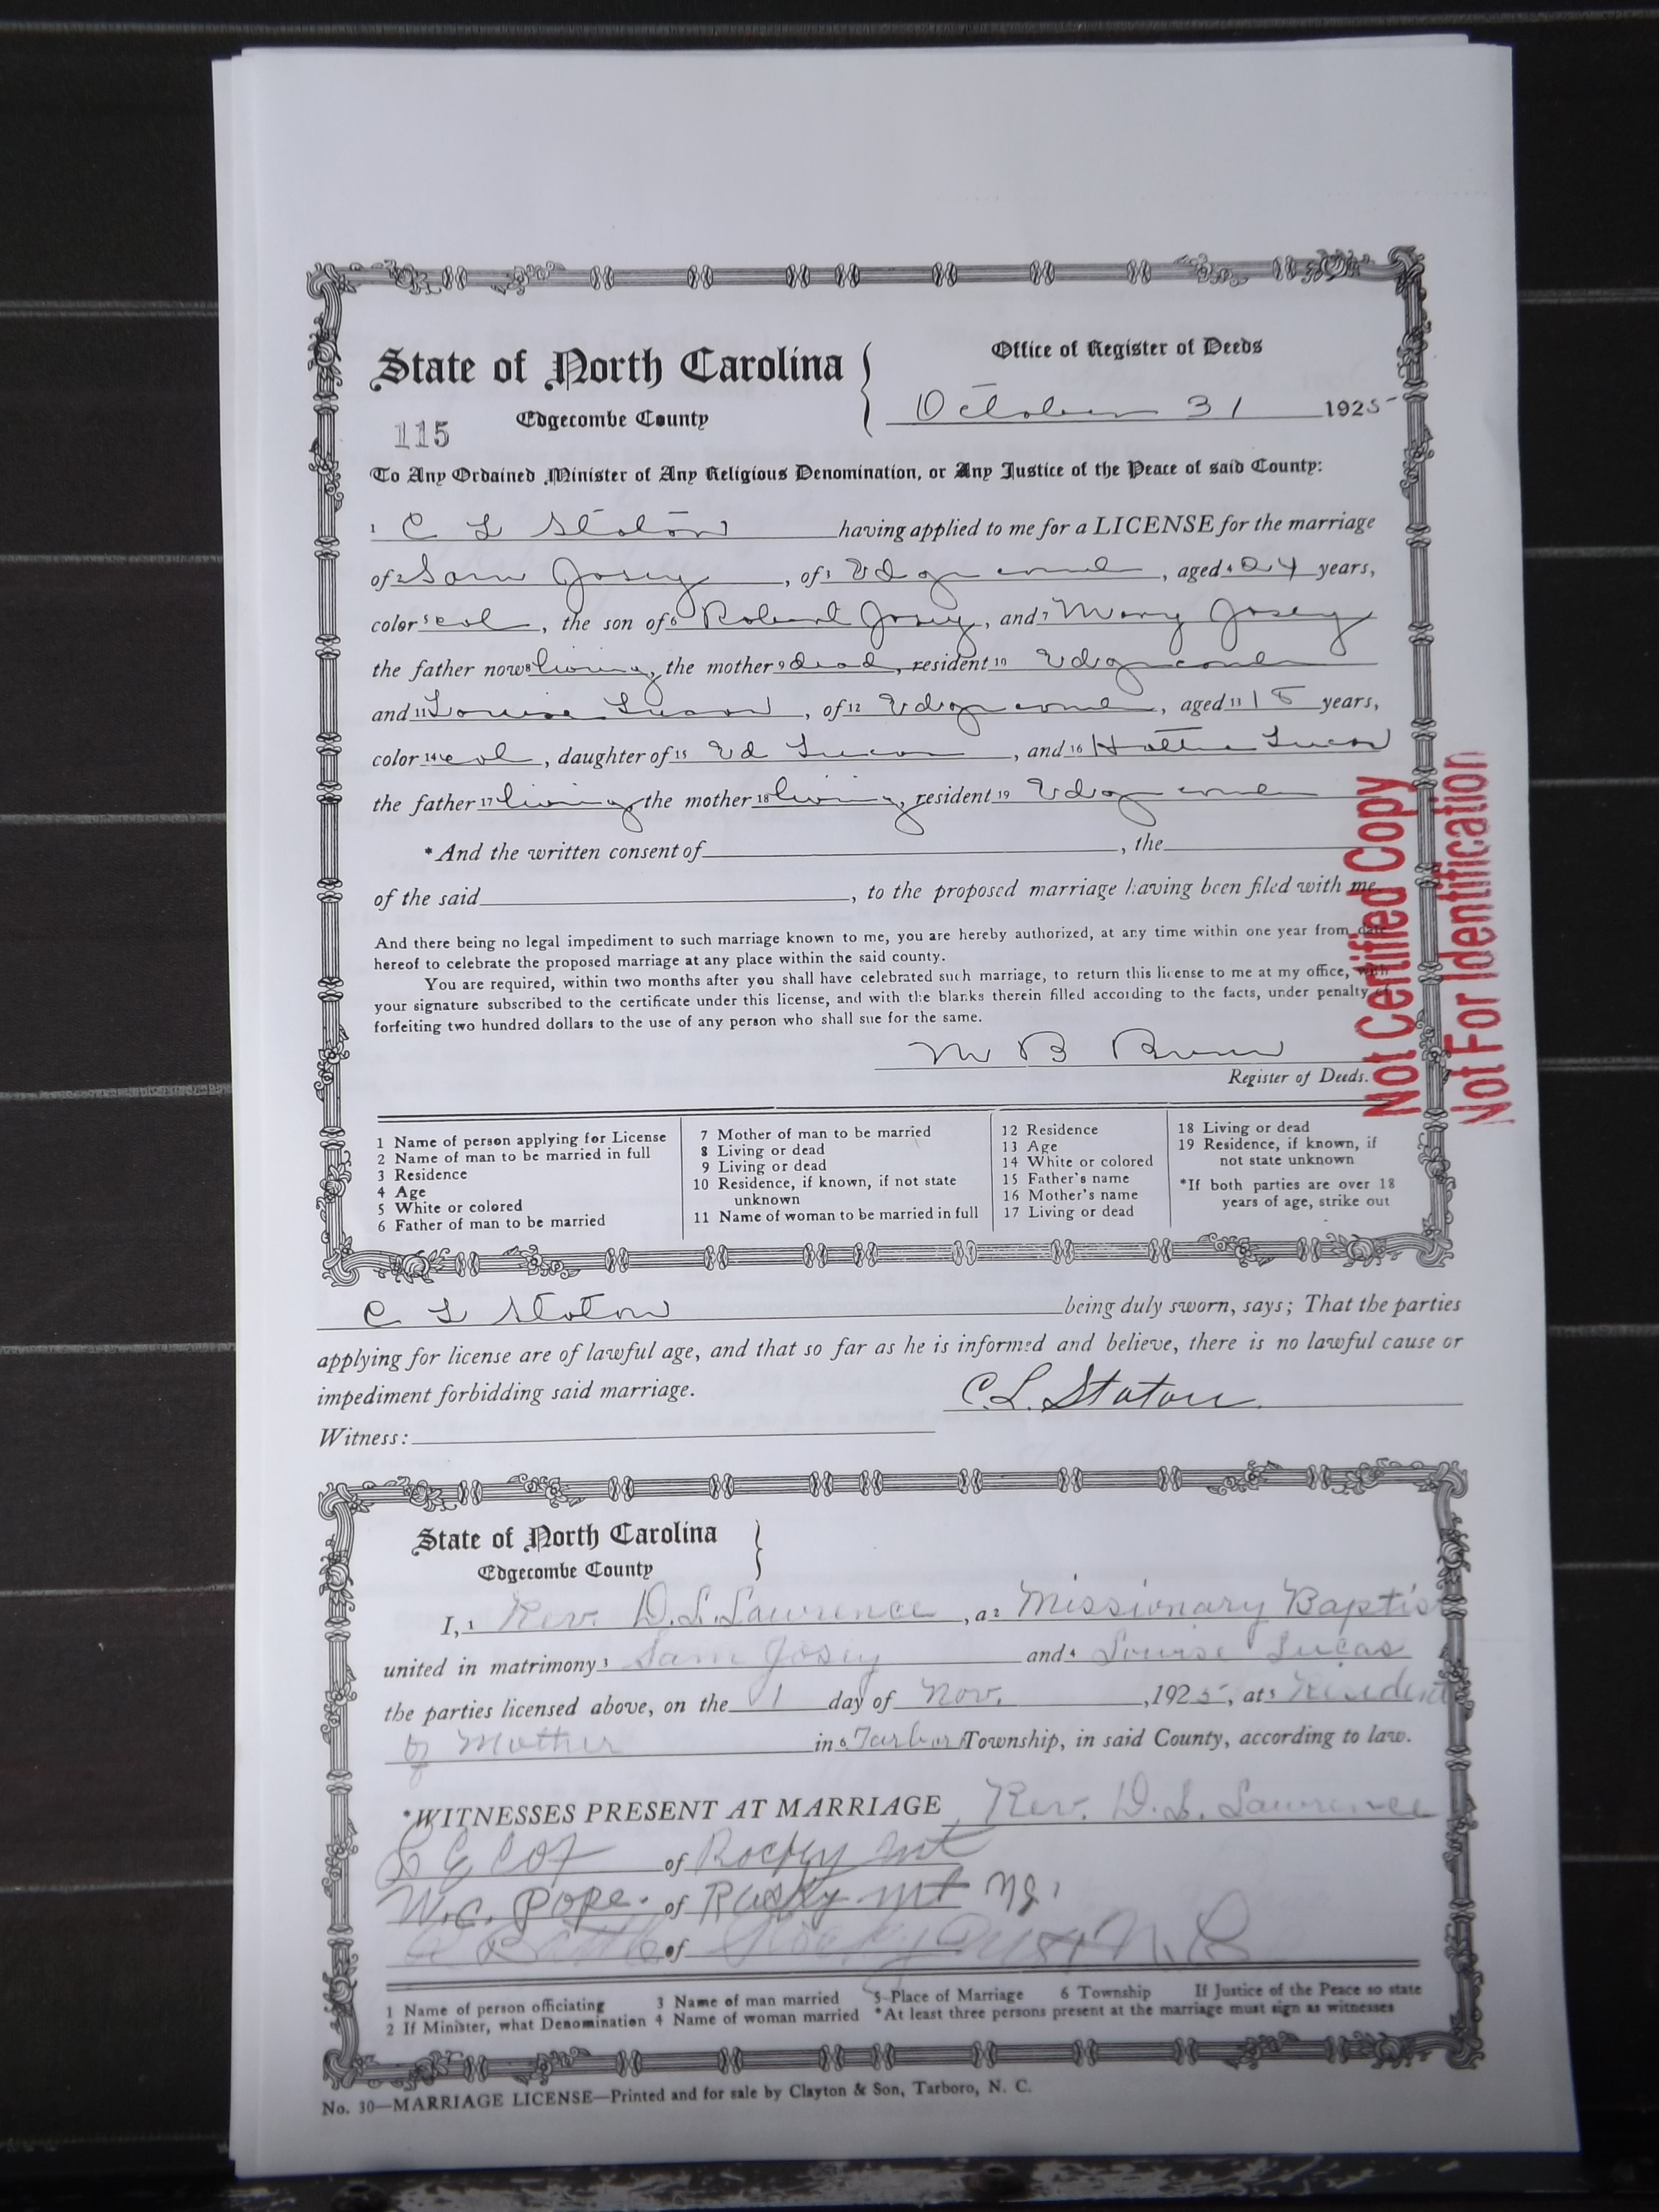 State of North Carolina
Office of Register of Deeds
115
Edgecombe County
October 31 1925
To Any Ordained Minister of Any Religious Denomination, or Any Justice of the Peace of said County:
1 C L Staton having applied to me for a LICENSE for the marriage
of 2 Sam Josey, of 3 Edgecombe, aged 4 24 years,
color 5 col, the son of 6 Robert Josey, and 7 Mary Josey
the father now 8 living, the mother 9 dead, resident 10 Edgecombe
and 11 Louise Lucas, of 12 Edgecombe, aged 13 18 years,
color 14 col, daughter of 15 Ed Lucas, and 16 Hattie Lucas
the father 17 living, the mother 18 living, resident 19 Edgecombe
*And the written consent of , the
of the said , to the proposed marriage having been filed with me.
And there being no legal impediment to such marriage known to me, you are hereby authorized, at any time within one year from date
hereof to celebrate the proposed marriage at any place within the said county.
You are required, within two months after you shall have celebrated such marriage, to return this license to me at my office, with
your signature subscribed to the certificate under this license, and with the blanks therein filled according to the facts, under penalty of
forfeiting two hundred dollars to the use of any person who shall sue for the same.
Register of Deeds.
Not Certified Copy
Not For Identification
1 Name of person applying for License
2 Name of man to be married in full
3 Residence
4 Age
5 White or colored
6 Father of man to be married
7 Mother of man to be married
8 Living or dead
9 Living or dead
10 Residence, if known, if not state
unknown
11 Name of woman to be married in full
12 Residence
13 Age
14 White or colored
15 Father's name
16 Mother's name
17 Living or dead
18 Living or dead
19 Residence, if known, if
not state unknown
*If both parties are over 18
years of age, strike out
C L Staton being duly sworn, says; That the parties
applying for license are of lawful age, and that so far as he is informed and believe, there is no lawful cause or
impediment forbidding said marriage.
C.L. Staton
Witness:
State of North Carolina
Edgecombe County
I, 1 Rev. D.S. Lawrence, a 2 Missionary Baptist
united in matrimony 3 Sam Josey and 4 Louise Lucas
the parties licensed above, on the 1 day of Nov., 1925, at 5 Resident
of Mother in 6 Tarboro Township, in said County, according to law.
*WITNESSES PRESENT AT MARRIAGE Rev. D.S. Lawrence
of Rocky Mt
W.C. Pope. of Rocky Mt
Battle of Rocky Mt N.C.
1 Name of person officiating
2 If Minister, what Denomination
3 Name of man married
4 Name of woman married
5 Place of Marriage 6 Township If Justice of the Peace so state
*At least three persons present at the marriage must sign as witnesses
No. 30—MARRIAGE LICENSE—Printed and for sale by Clayton & Son, Tarboro, N. C.